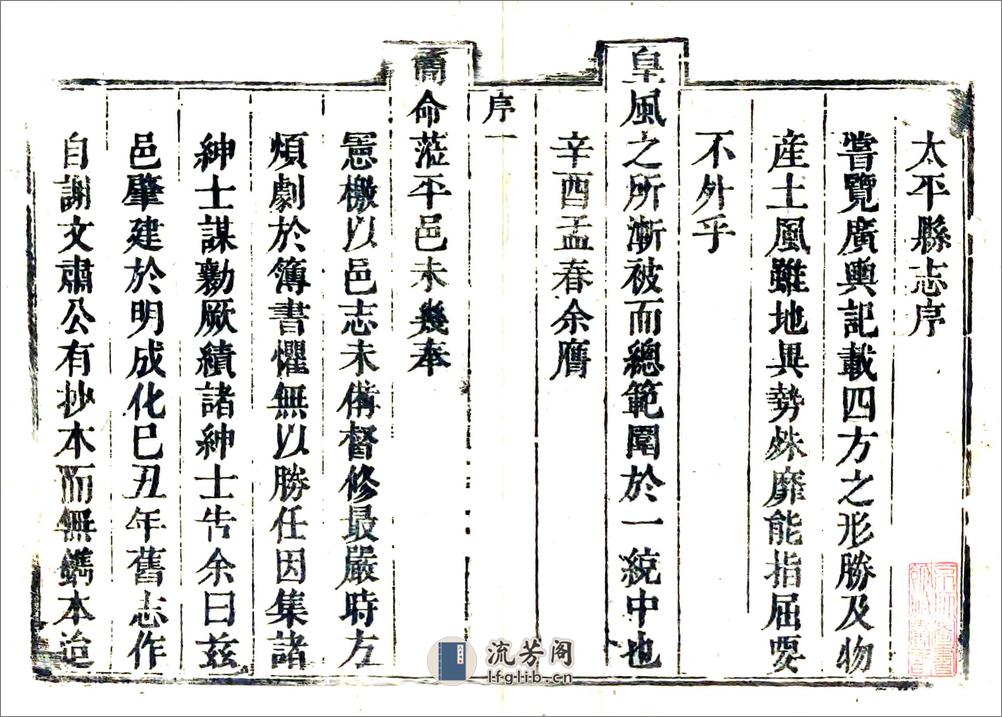 太平縣志序
嘗覽廣輿記載四方之形勝及物
産土風雖地異勢殊靡能指屈要
不外乎
皇風之所漸被而總範圍於一統中也
辛酉孟春余膺
序一
簡命蒞平邑未幾奉
憲檄以邑志未備督修最嚴時方
煩劇於簿書懼無以勝任因集諸
紳士謀勷厥績諸紳士告余曰茲
邑肇建於明成化巳丑年舊志作
自謝文肅公有抄本而無鐫本迨
流芳阁
lfglib.cn